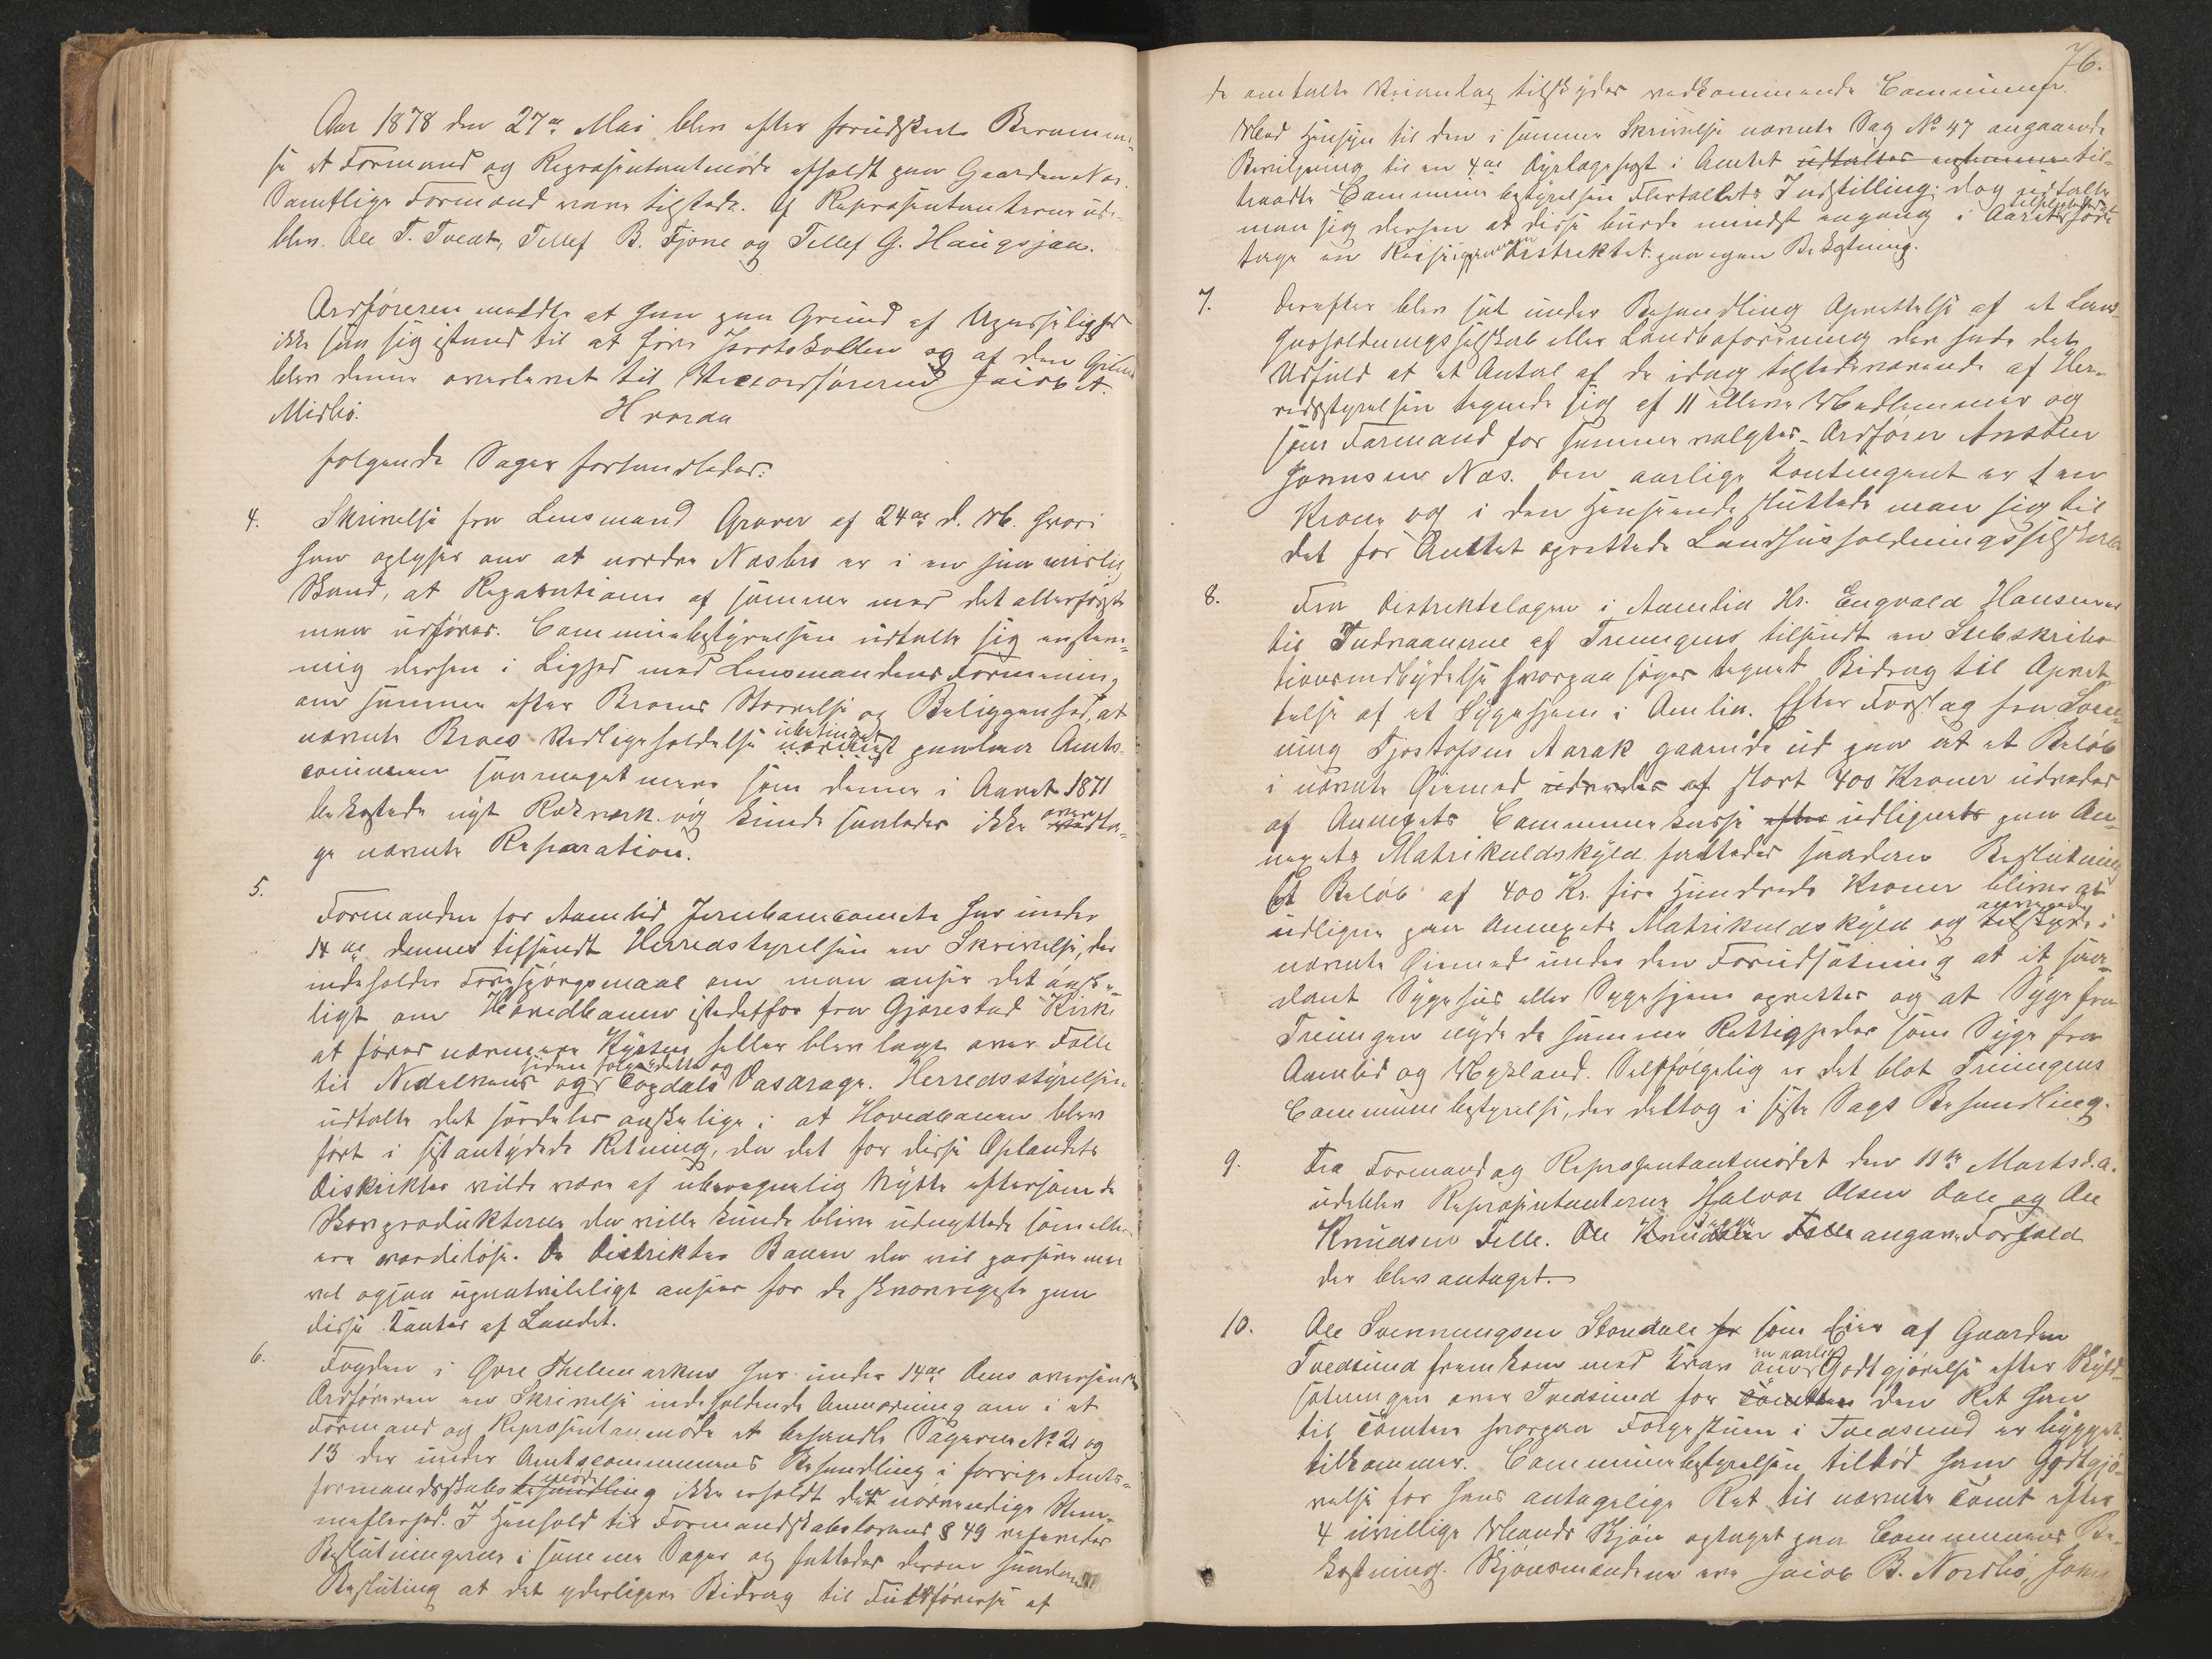 Aar 1878 den 27de Mai blev efter forudskeet Berammel-
se et Formand og Repræsentantmøde afholdt paa Gaarden Næs.
Samtlige Formænd vare tilstede. Af Repræsentanterne ude-
blev. Ole T. Tveit, Tellef B. Fjone og Tellef G. Haugsjaa.
Ordføreren meldte at han paa Grund af Upasselighed
ikke saa sig istand til at føre Protokollen og af den Grund
blev denne overleveret til Viceordføreren Jacob A.
Midbø. Hvorda
følgende Sager forhandledes:
4. Skrivelse fra Lensmand Graver af 24de d. M. hvori
han oplyser om at nordre Næsbro er i en saa mislig
Stand, at Reparation af samme med det allerførste
maa udføres. Communebestyrelsen udtalte sig enstem-
mig derhen i Lighed med Lensmandens Formening
om samme efter Broens Størrelse og Beliggenhed, at
nævnte Broes Vedligeholdelse ubetinget paahviler Amts-
communen saa meget mere som denne i Aaret 1871
bekostede nyt Rækværk og kunde saaledes ikke overta-
ge nævnte Reparation.
5. Formanden for Aamlid Jernbanecomite har under
14de dennes tilsendt Herredstyrelsen en Skrivelse, der
indeholder Forespørgsmaal om man anser det ønske-
ligt om Hovedbanen istedetfor fra Gjørestad Kirke
at føres nærmere Kysten heller blev lagt over Felle
til Nidelvens og siden følge dette og Topdals Vasdrage. Herredsstyrelsen
udtalte det særdeles ønskelige i at Hovedbanen blev
ført i sidstantydede Retning, da det for disse Oplandets
Distrikter vilde være af uberegnelig Nytte eftersom de
Skovprodukterne der ville kunde blive udnyttede som ellers
ere værdiløse. De Distrikter Banen der vil passere maa
vel ogsaa upaatvileligt ansees for de skovrigeste paa
disse Kanter af Landet.
6. Fogden i Øvre Thelemarken har under 14de dens oversendt
Ordføreren en Skrivelse indeholdende Anmodning om i et
Formand og Repræsentanmøde at behandle Sagerne No 21 og
13 der under Amtscommunens Behandling i forrige Amts-
formandskabsmøde ikke erholdt den nødvendige Stem-
meflerhed. I Henhold til Formandskabslovens § 49 refereredes
Beslutningerne i samme Sager og fattedes derom saadan
Beslutning at det yderligere Bidrag til Fuldførelse af
76.
de omtalte Veianlæg tilskydes vedkommende Communer.
Med Hensyn til den i samme Skrivelse nævnte Sag No 47 angaaende
Bevilgning til en 4de Dyrlægepost i Amtet udtaltes enstemme til-
traadte Communebestyrelsen Flertallets Indstilling; dog udtalte
man sig derhen at disse burde mindst engang i Aaret tilpligtedes fore
tage en Reise igjennem Distriktet paa egen Bekostning.
7. Derefter blev sat under Behandling Oprettelse af et Land-
husholdningsselskab eller Landboforening der havde det
Udfald at et Antal af de idag tilstedeværende af Her-
redsstyrelsen tegnede sig af 11 elleve Medlemmer og
som Formand for samme valgtes Ordfører Ansten
Jonsen Næs. Den aarlige Kontingent er 1 en
Krone og i den Henseende sluttede man sig til
det for Amtet oprettede Landhusholdningsselskab.
8. Fra Distriktslægen i Aamlid Hr. Engvald Hansen er
til Indvaanerne af Treungens tilsendt en Subskrib-
tionsindbydelse hvorpaa søges tegnet Bidrag til Opret-
telse af et Sygehjem i Omlid. Efter Forslag fra Sven-
ning Tjostolfsen Aarak gaaende ud paa at et Beløb
i nævnte Øiemed udredes af stort 400 Kroner udredes
af Annexets Communekasse efter udlignets paa An-
nexets Matrikuldskyld fattedes saadan Beslutning
Et Beløb af 400 Kr. fire Hundrede Kroner bliver at
udligne paa Annexets Matrikuldskyld og tilskyde anvende i
nævnte Øiemed under den Forudsætning at et saa-
dant Sygehus eller Sygehjem oprettes og at Syge fra
Treungen nyde de samme Rettigheder som Syge fra
Aamlid og Mykland. Selvfølgelig er det blot Treungens
Communebestyrelse, der deltog i sidste Sags Behandling.
9. Fra Formand og Repræsentantmødet den 11te Marts d. A.
udeblev Repræsentanterne Halvor Olsen Dale og Ole
Knudsen Felle. Ole Knudsen Felle angav Forfald
der blev antaget.
10. Ole Svennungsen Stordale for som Eier af Gaarden
Tvedsund fremkom med Krav om en aarlig Godtgjørelse efter Skyld-
sætningen over Tvedsund for Tomten den Ret han
til Tomten hvorpaa Forgestuen i Tvedsund er bygget
tilkommer. Communebestyrelsen tilbød ham Godtgjø-
relse for hans antagelige Ret til nævnte Tomt efter
4 uvillige Mænds Skjøn optaget paa Communens Be-
kostning. Skjønsmændene ere Jacob B. Nordbø, John